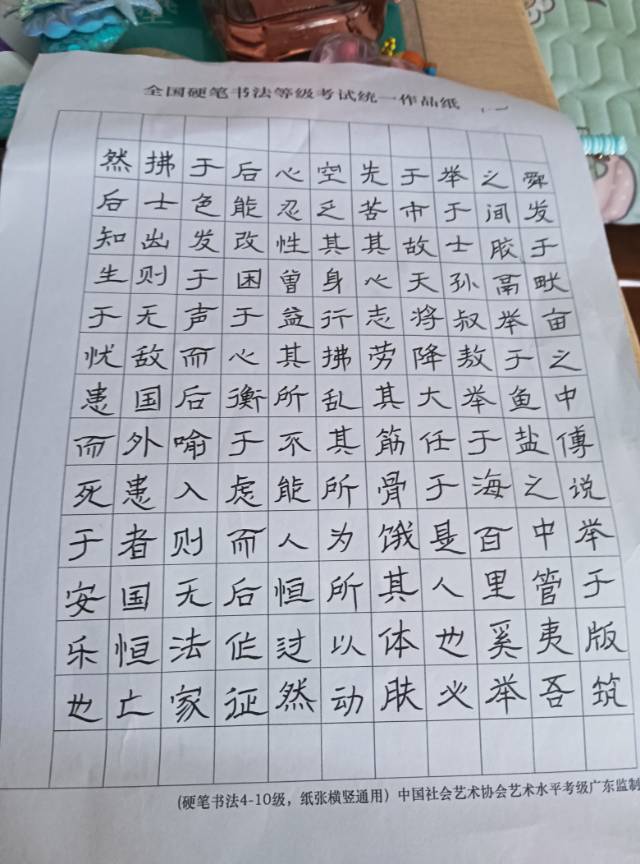 全国硬笔书法等级考试统一作品纸
舜发于畎亩之中傅说举于版筑
之间胶鬲举于鱼盐之中管夷吾
举于士孙叔敖举于海百里奚举
于市故天将降大任于是人也必
先苦其心志劳其筋骨饿其体肤
空乏其身行拂乱其所为所以动
心忍性曾益其所不能人恒过然
后能改困于心衡于虑而后作征
于色发于声而后喻入则无法家
拂士出则无敌国外患者国恒亡
然后知生于忧患而死于安乐也
(硬笔书法4-10级，纸张横竖通用) 中国社会艺术协会艺术水平考级广东监制